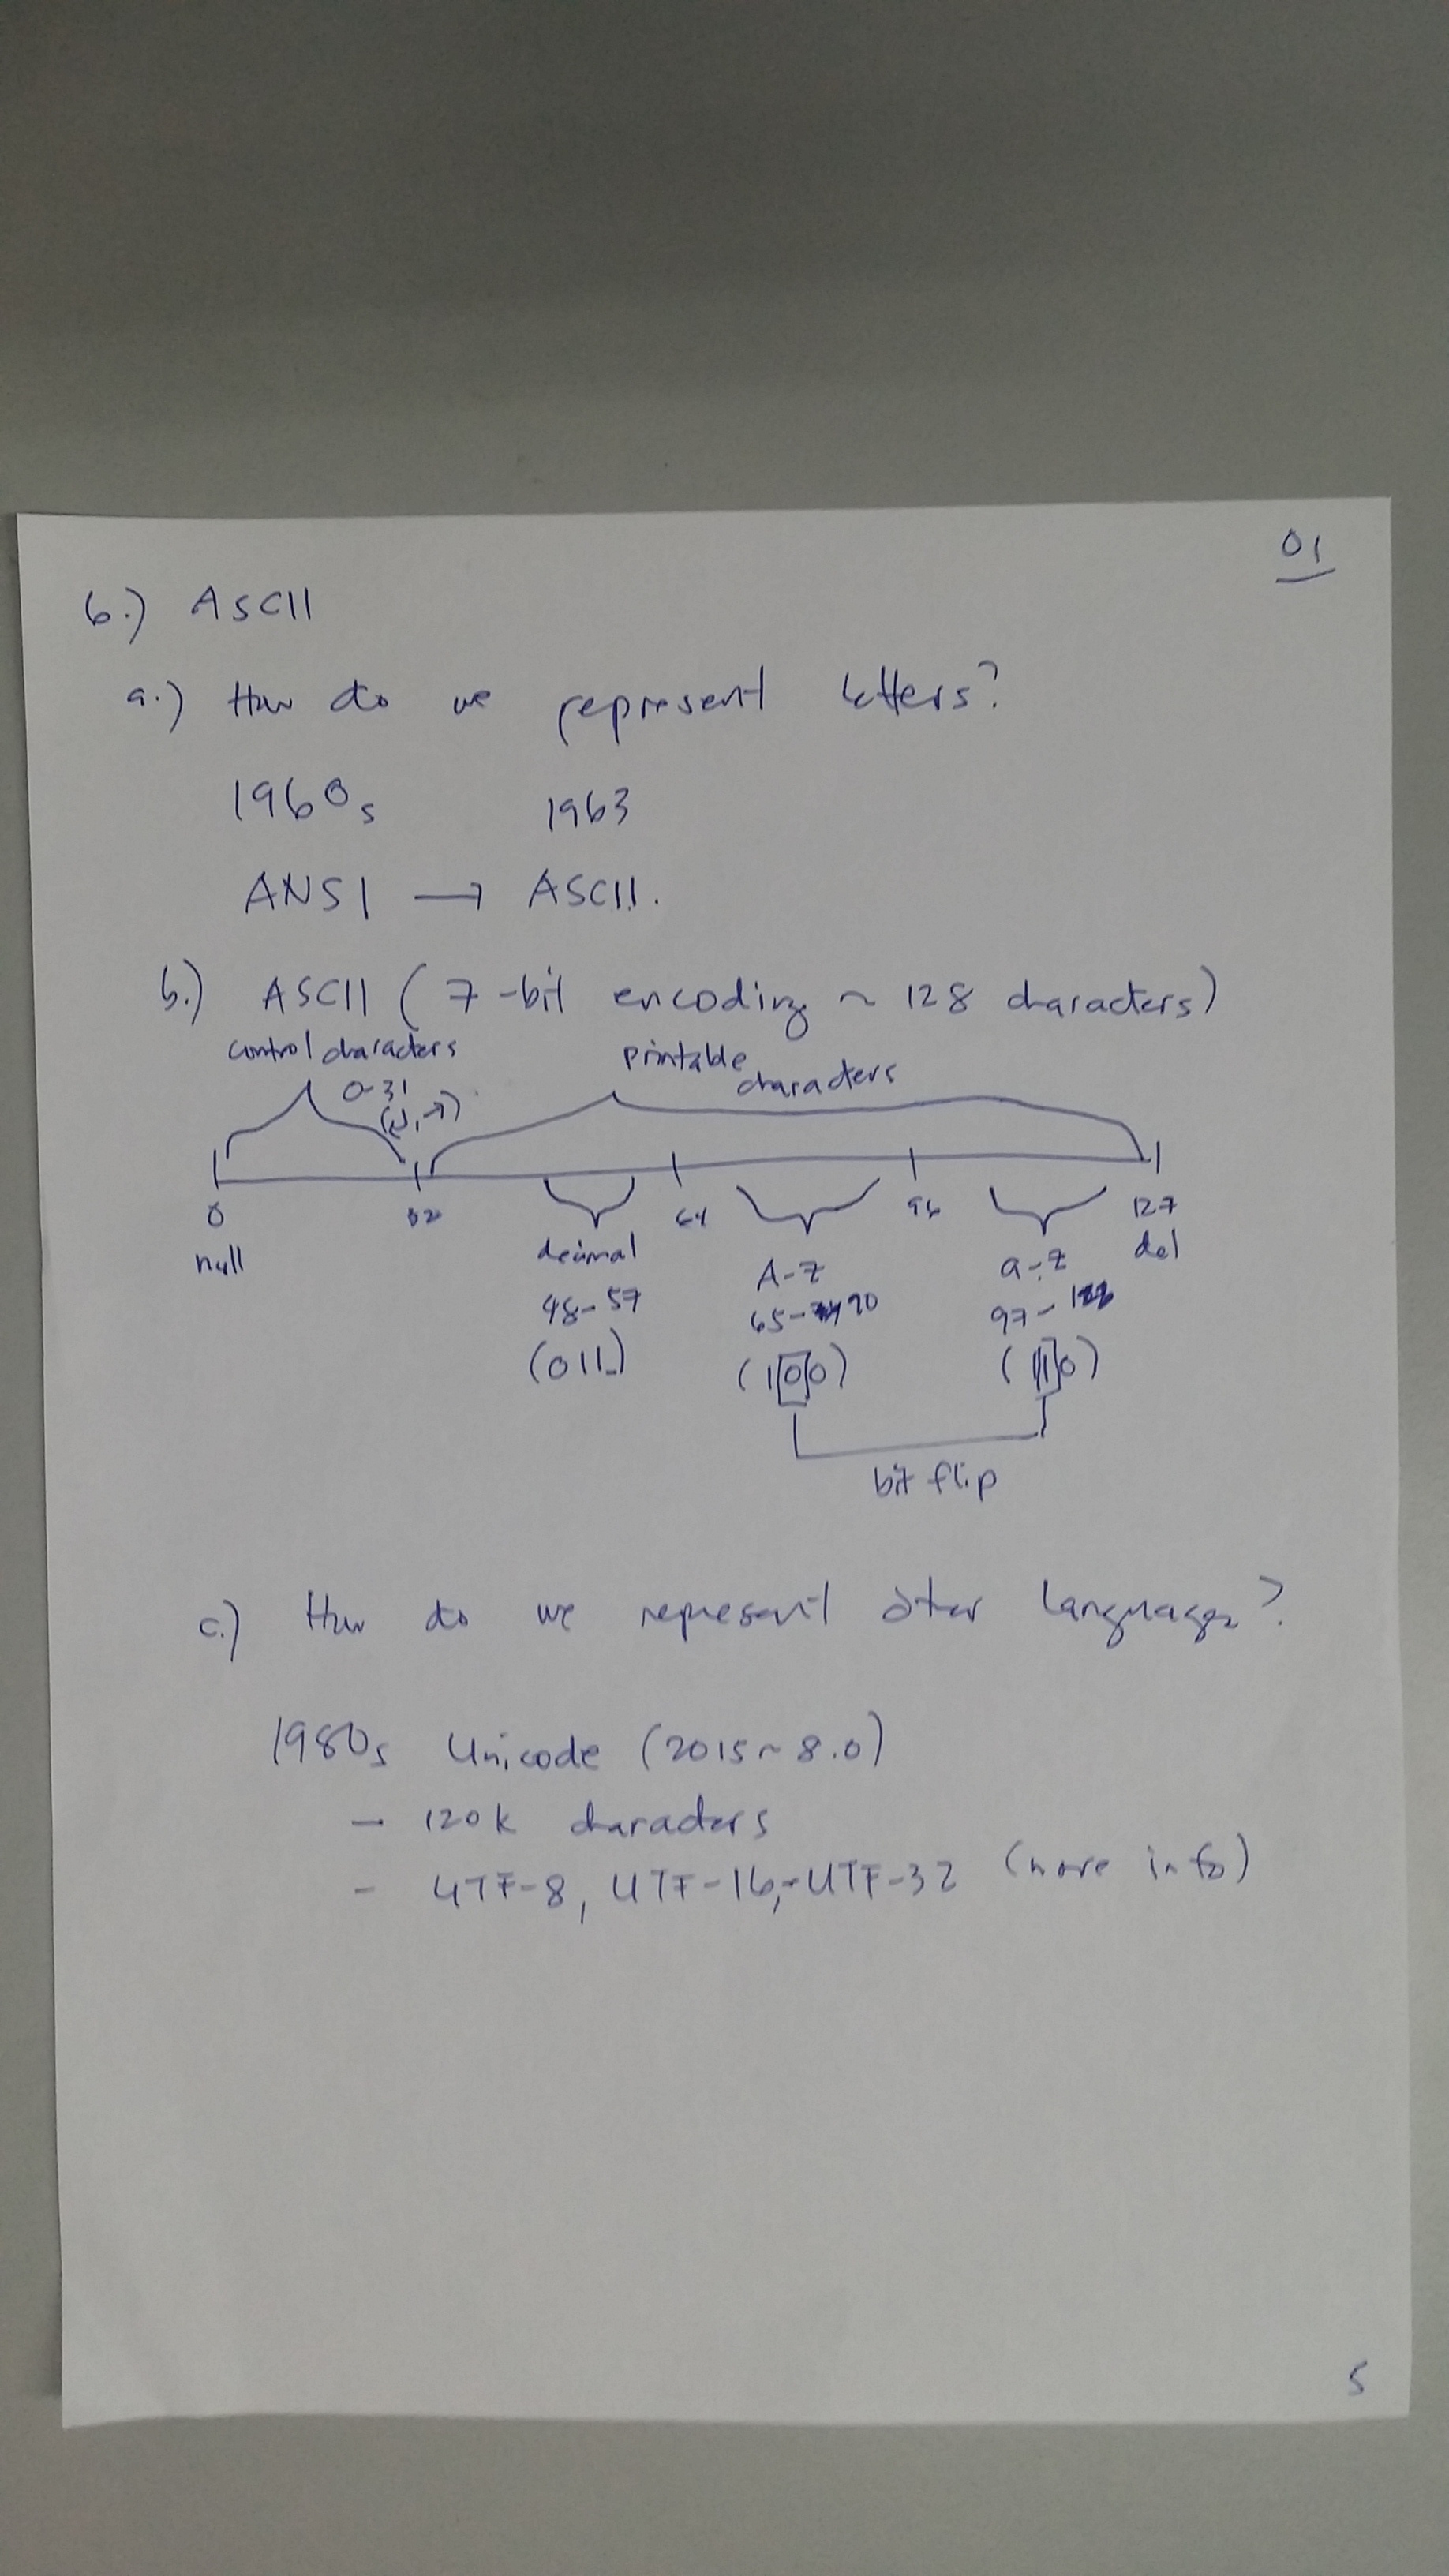 01
6.) ASCII
a.) How do we represent letters?
1960s 1963
ANSI → ASCII.
b.) ASCII (7-bit encoding ~ 128 characters)
control characters printable
characters
0-31
(↵, →)
0 32 64 96 127
null decimal A-Z a-z del
48-57 65-90 97-122
(011) (100) (110)
bit flip
c.) How do we represent other languages?
1980s Unicode (2015 ~ 8.0)
- 120k characters
- UTF-8, UTF-16, UTF-32 (more info)
5